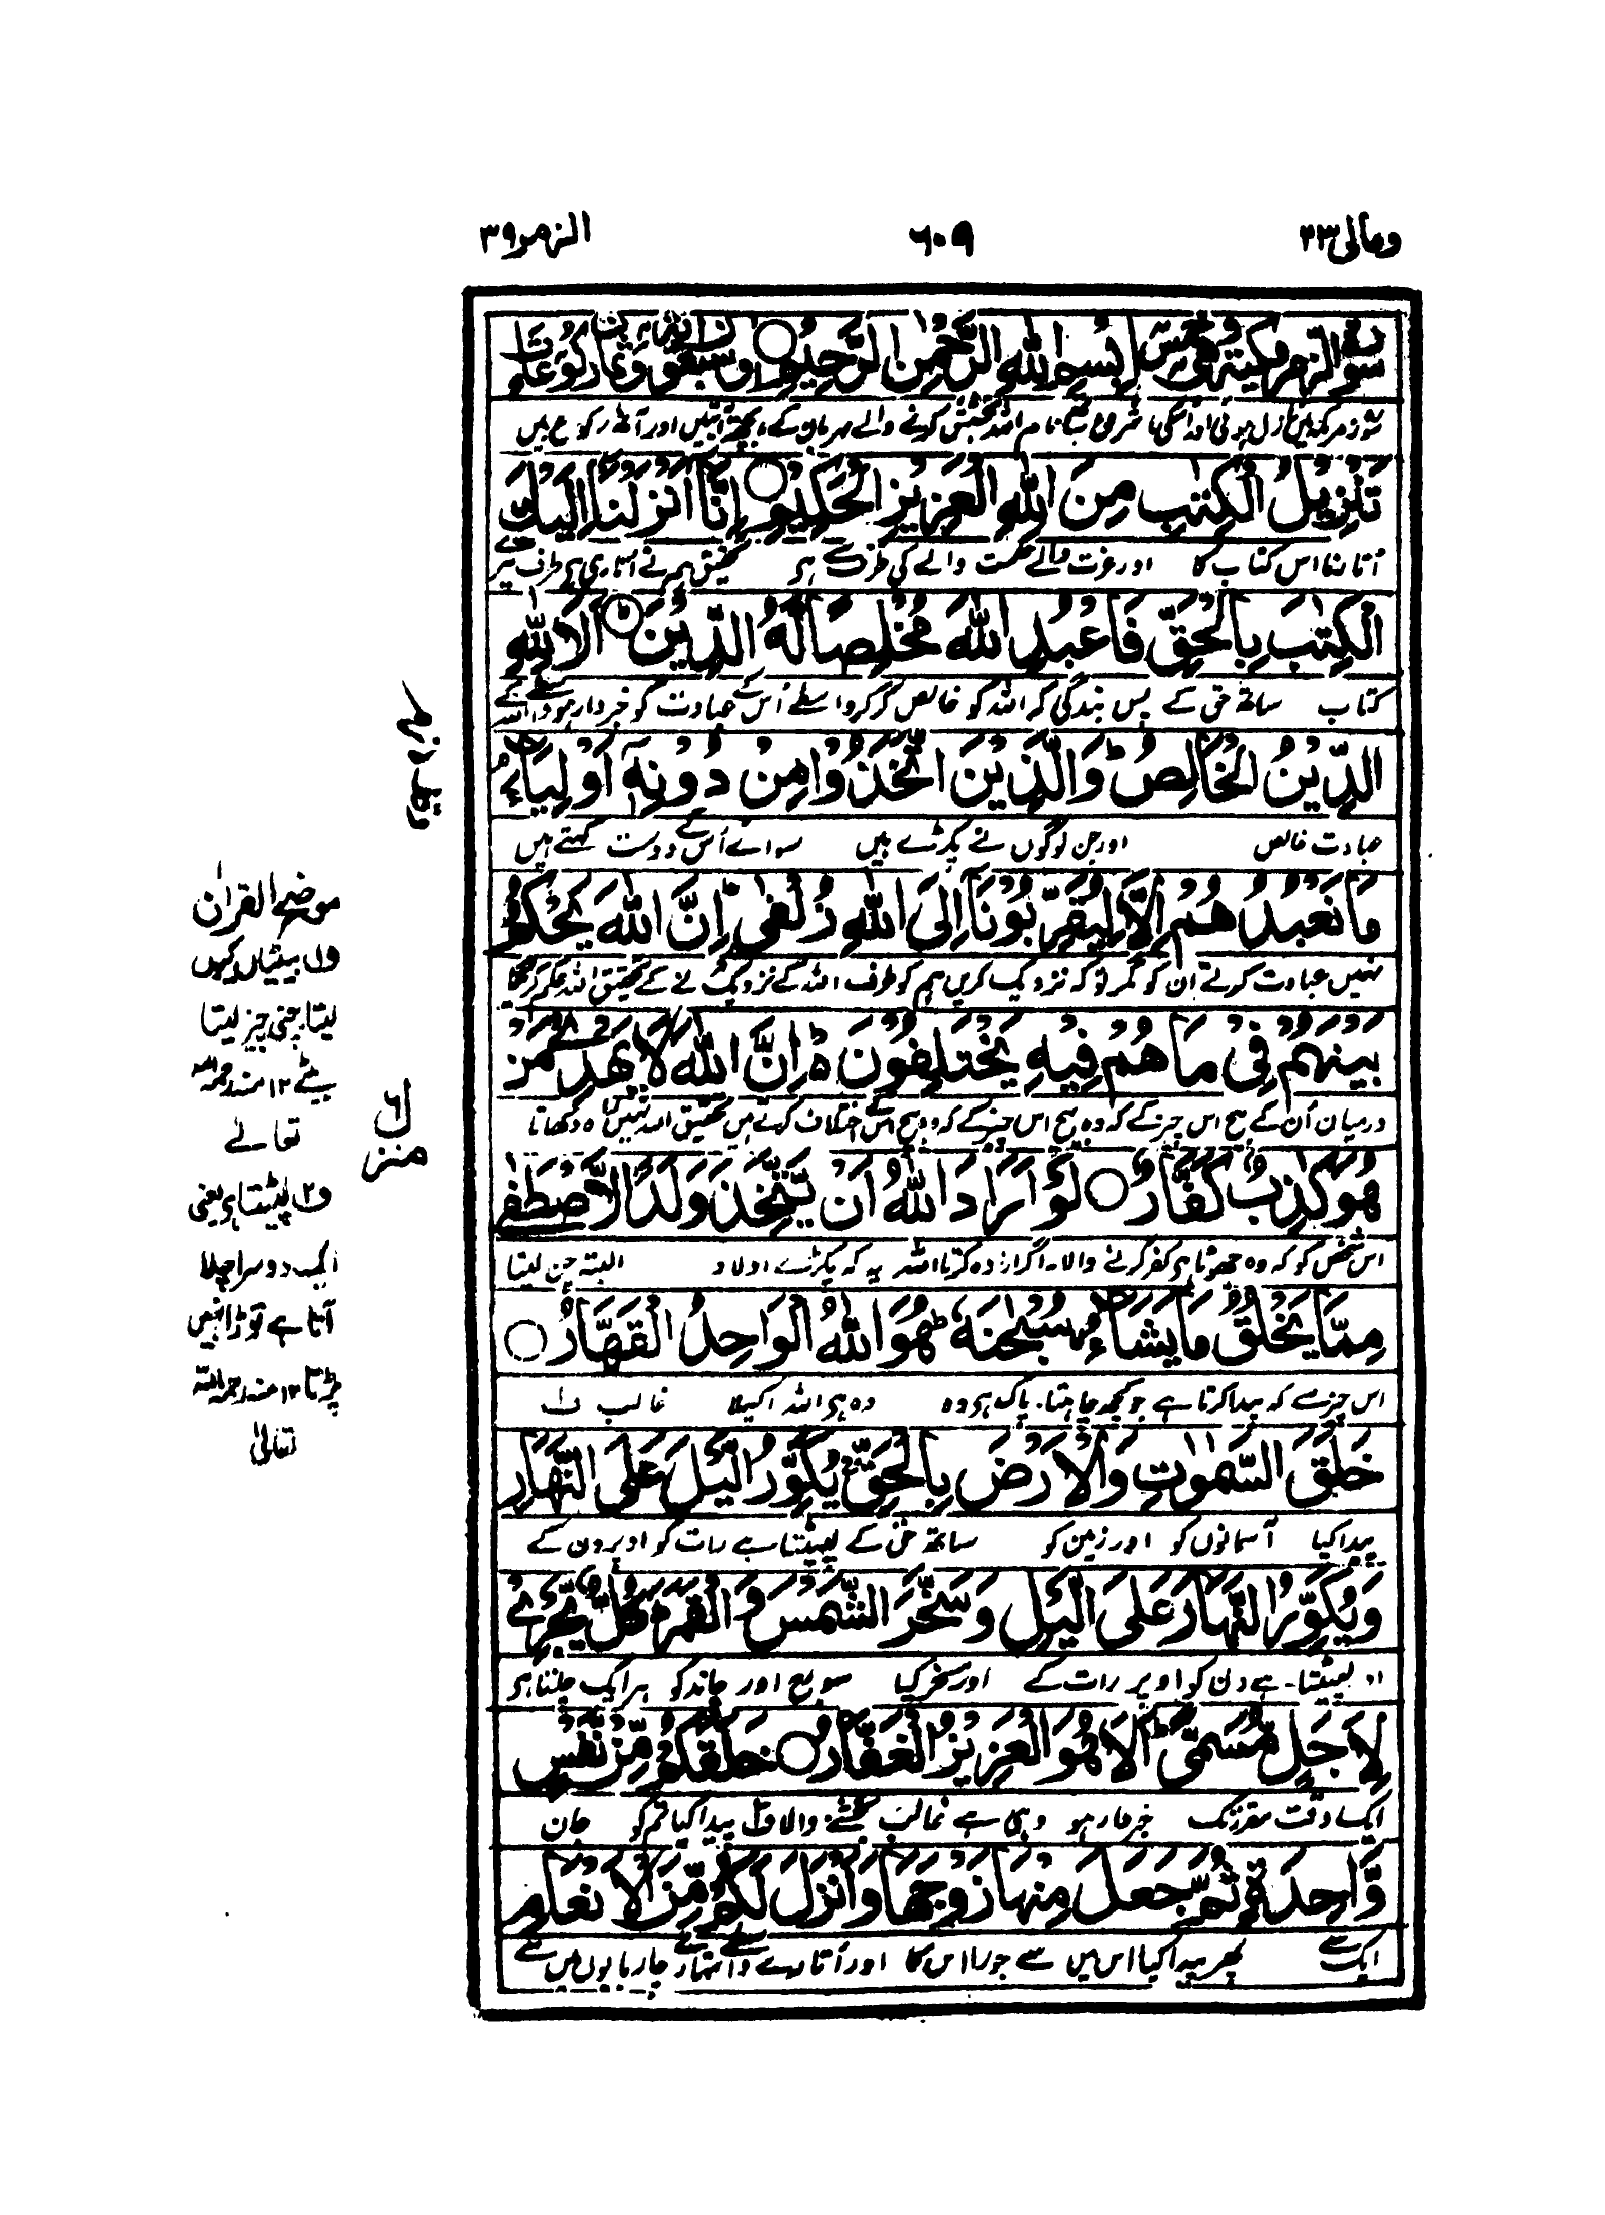 ومالی ۲۳
۶۰۹
الزمر ۳۹
سورة الزمر مكية وهي خمس بِسْمِ اللّٰهِ الرَّحْمٰنِ الرَّحِيْمِ ○ وسبعون وثمان ركوعات
تَنْزِيْلُ الْكِتٰبِ مِنَ اللّٰهِ الْعَزِيْزِ الْحَكِيْمِ ○ اِنَّا اَنْزَلْنَا اِلَيْكَ
اتارنا اس کتاب کا اور عزت والے حکمت والے کی طرف سے ہی تحقیق ہم نے اتاری ہی طرف تیرے
الْكِتٰبَ بِالْحَقِّ فَاعْبُدِ اللّٰهَ مُخْلِصًا لَّهُ الدِّيْنَ ○ اَلَا لِلّٰهِ
کتاب ساتھ حق کے پس بندگی کر اللہ کو خالص کر کر واسطے اُس کے عبادت کو خبردار ہو واسطے اللہ کے
الدِّيْنُ الْخَالِصُ ؕ وَالَّذِيْنَ اتَّخَذُوْا مِنْ دُوْنِهٖۤ اَوْلِيَآءَ ۘ
عبادت خالص اور جن لوگوں نے پکڑے ہیں سوائے اُس کے دوست کہتے ہیں
مَا نَعْبُدُهُمْ اِلَّا لِيُقَرِّبُوْنَاۤ اِلَى اللّٰهِ زُلْفٰى ؕ اِنَّ اللّٰهَ يَحْكُمُ
نہیں عبادت کرتے ان کو مگر تو کہ نزدیک کریں ہم کو طرف اللہ کے نزدیک نے کے تحقیق اللہ حکم کریگا
بَيْنَهُمْ فِيْ مَا هُمْ فِيْهِ يَخْتَلِفُوْنَ ؕ اِنَّ اللّٰهَ لَا يَهْدِيْ مَنْ
درمیان اُن کے بیچ اس چیز کے کہ وہ بیچ اس کے اختلاف کرتے ہیں تحقیق اللہ نہیں راہ دکھاتا
هُوَ كٰذِبٌ كَفَّارٌ ○ لَوْ اَرَادَ اللّٰهُ اَنْ يَّتَّخِذَ وَلَدًا لَّاصْطَفٰى
اس شخص کو کہ وہ جھوٹا ہی کفر کرنے والا۔ اگر ارادہ کرتا اللہ یہ کہ پکڑے اولاد البتہ چن لیتا
مِمَّا يَخْلُقُ مَا يَشَآءُ ۙ سُبْحٰنَهٗ ؕ هُوَ اللّٰهُ الْوَاحِدُ الْقَهَّارُ ○
اس چیز سے کہ پیدا کرتا ہے جو کچھ چاہتا۔ پاک ہی وہ وہ ہی اللہ اکیلا غالب ف۱
خَلَقَ السَّمٰوٰتِ وَالْاَرْضَ بِالْحَقِّ ۚ يُكَوِّرُ الَّيْلَ عَلَى النَّهَارِ
پیدا کیا آسمانوں کو اور زمین کو ساتھ حق کے لپیٹتا ہے رات کو اوپر دن کے
وَيُكَوِّرُ النَّهَارَ عَلَى الَّيْلِ وَسَخَّرَ الشَّمْسَ وَالْقَمَرَ ؕ كُلٌّ يَّجْرِيْ
اور لپیٹتا ہے دن کو اوپر رات کے اور مسخر کیا سورج اور چاند کو ہر ایک چلتا ہی
لِاَجَلٍ مُّسَمًّى ؕ اَلَا هُوَ الْعَزِيْزُ الْغَفَّارُ ○ خَلَقَكُمْ مِّنْ نَّفْسٍ
ایک وقت مقرر تک خبردار ہو وہی ہے غالب بخشنے والا ف۲ پیدا کیا تم کو جان
وَّاحِدَةٍ ثُمَّ جَعَلَ مِنْهَا زَوْجَهَا وَاَنْزَلَ لَكُمْ مِّنَ الْاَنْعَامِ
ایک سے پھر پیدا کیا اس میں سے جوڑا اس کا اور اتارے واسطے تمہارے چارپایوں میں سے
منزل ۶
موضح القرآن
ف۱ بیٹیاں کیوں
لیتا چنی چیز لیتا
بیٹے ۱۲ منہ رحمہ اللہ
تعالے
ف۲ لپیٹتا ہی یعنی
ایک دوسرا چلا
آتا ہے توڑا نہیں
پڑتا ۱۲ منہ رحمہ اللہ
تعالیٰ